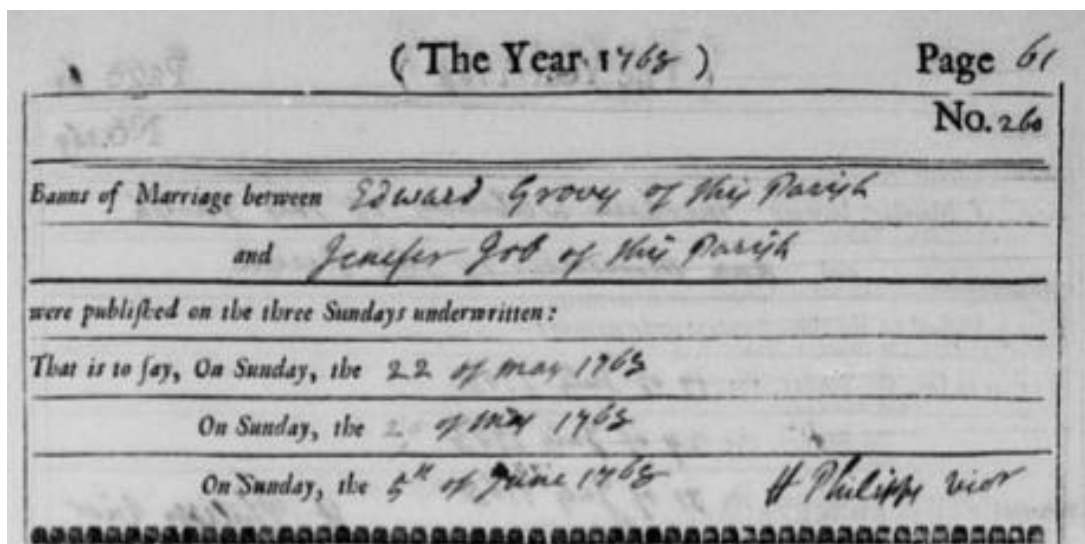 (The Year 1768) Page 61
No. 260
Banns of Marriage between Edward Grovy of this Parish
and Jenefer Job of this Parish
were publiſhed on the three Sundays underwritten:
That is to ſay, On Sunday, the 22 of may 1768
On Sunday, the of May 1768
On Sunday, the 5th of June 1768 H Philipps vicr